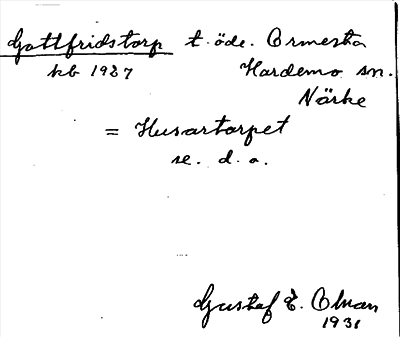 Gottfridstorp t. öde. Ormesta
kb 1927 Hardemo sn.
Närke
= Husartorpet
se. d. o.
Gustaf E. Olman
1931